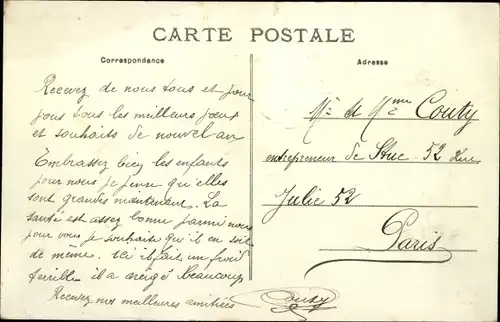 CARTE POSTALE
Correspondance
Recevez de nous tous et pour
vous tous les meilleurs vœux
et souhaits de nouvel an
Embrassez bien les enfants
pour nous je pense qu'elles
sont grandes maintenant. La
santé est assez bonne parmi nous
pour vous je souhaite qu'il en soit
de même. ici il fait un froid
terrible il a neigé beaucoup
Recevez nos meilleures amitiées
Couty
Adresse
Mr et Mme Couty
entrepreneur de Stuc - 52 Rue
Julie 52
Paris